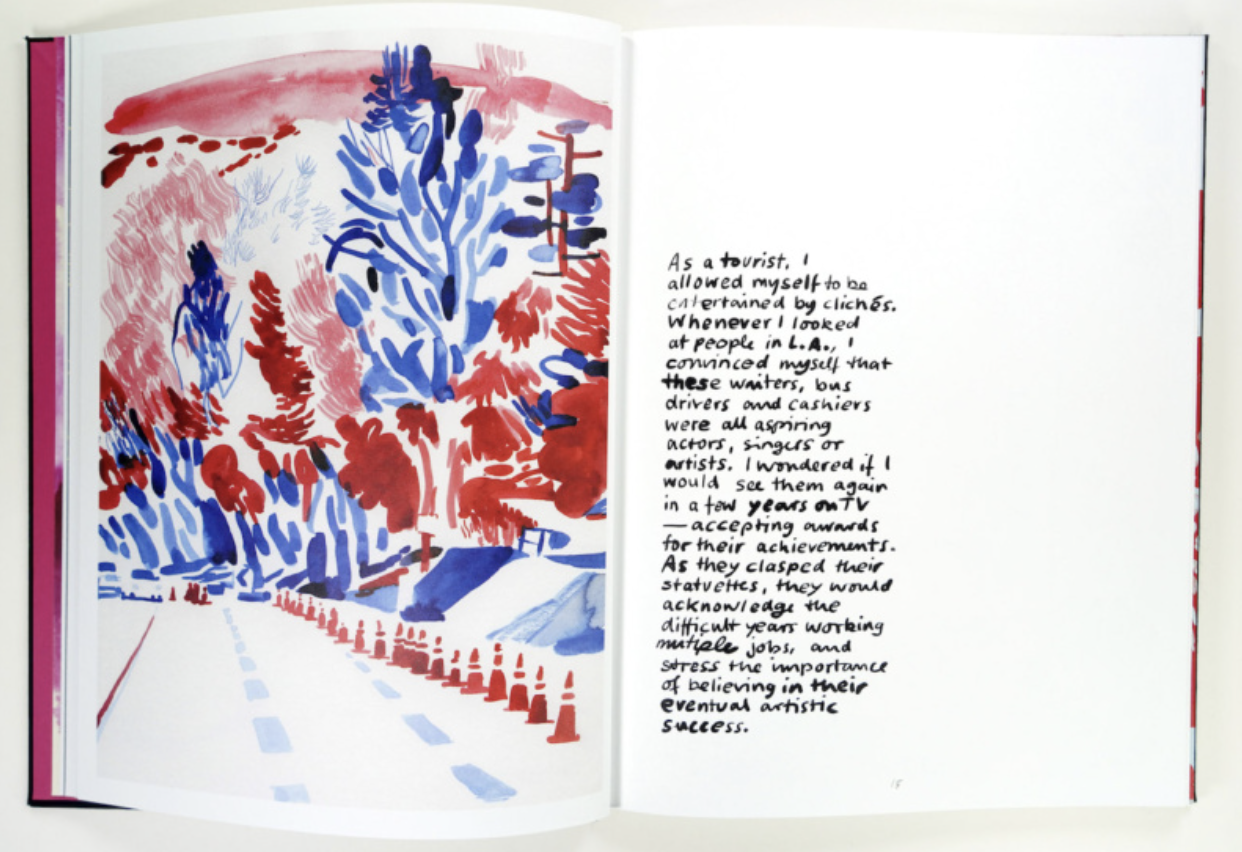 As a tourist, I
allowed myself to be
entertained by clichés.
Whenever I looked
at people in L.A., I
convinced myself that
these waiters, bus
drivers and cashiers
were all aspiring
actors, singers or
artists. I wondered if I
would see them again
in a few years on TV
— accepting awards
for their achievements.
As they clasped their
statuettes, they would
acknowledge the
difficult years working
mutiple jobs, and
stress the importance
of believing in their
eventual artistic
success.